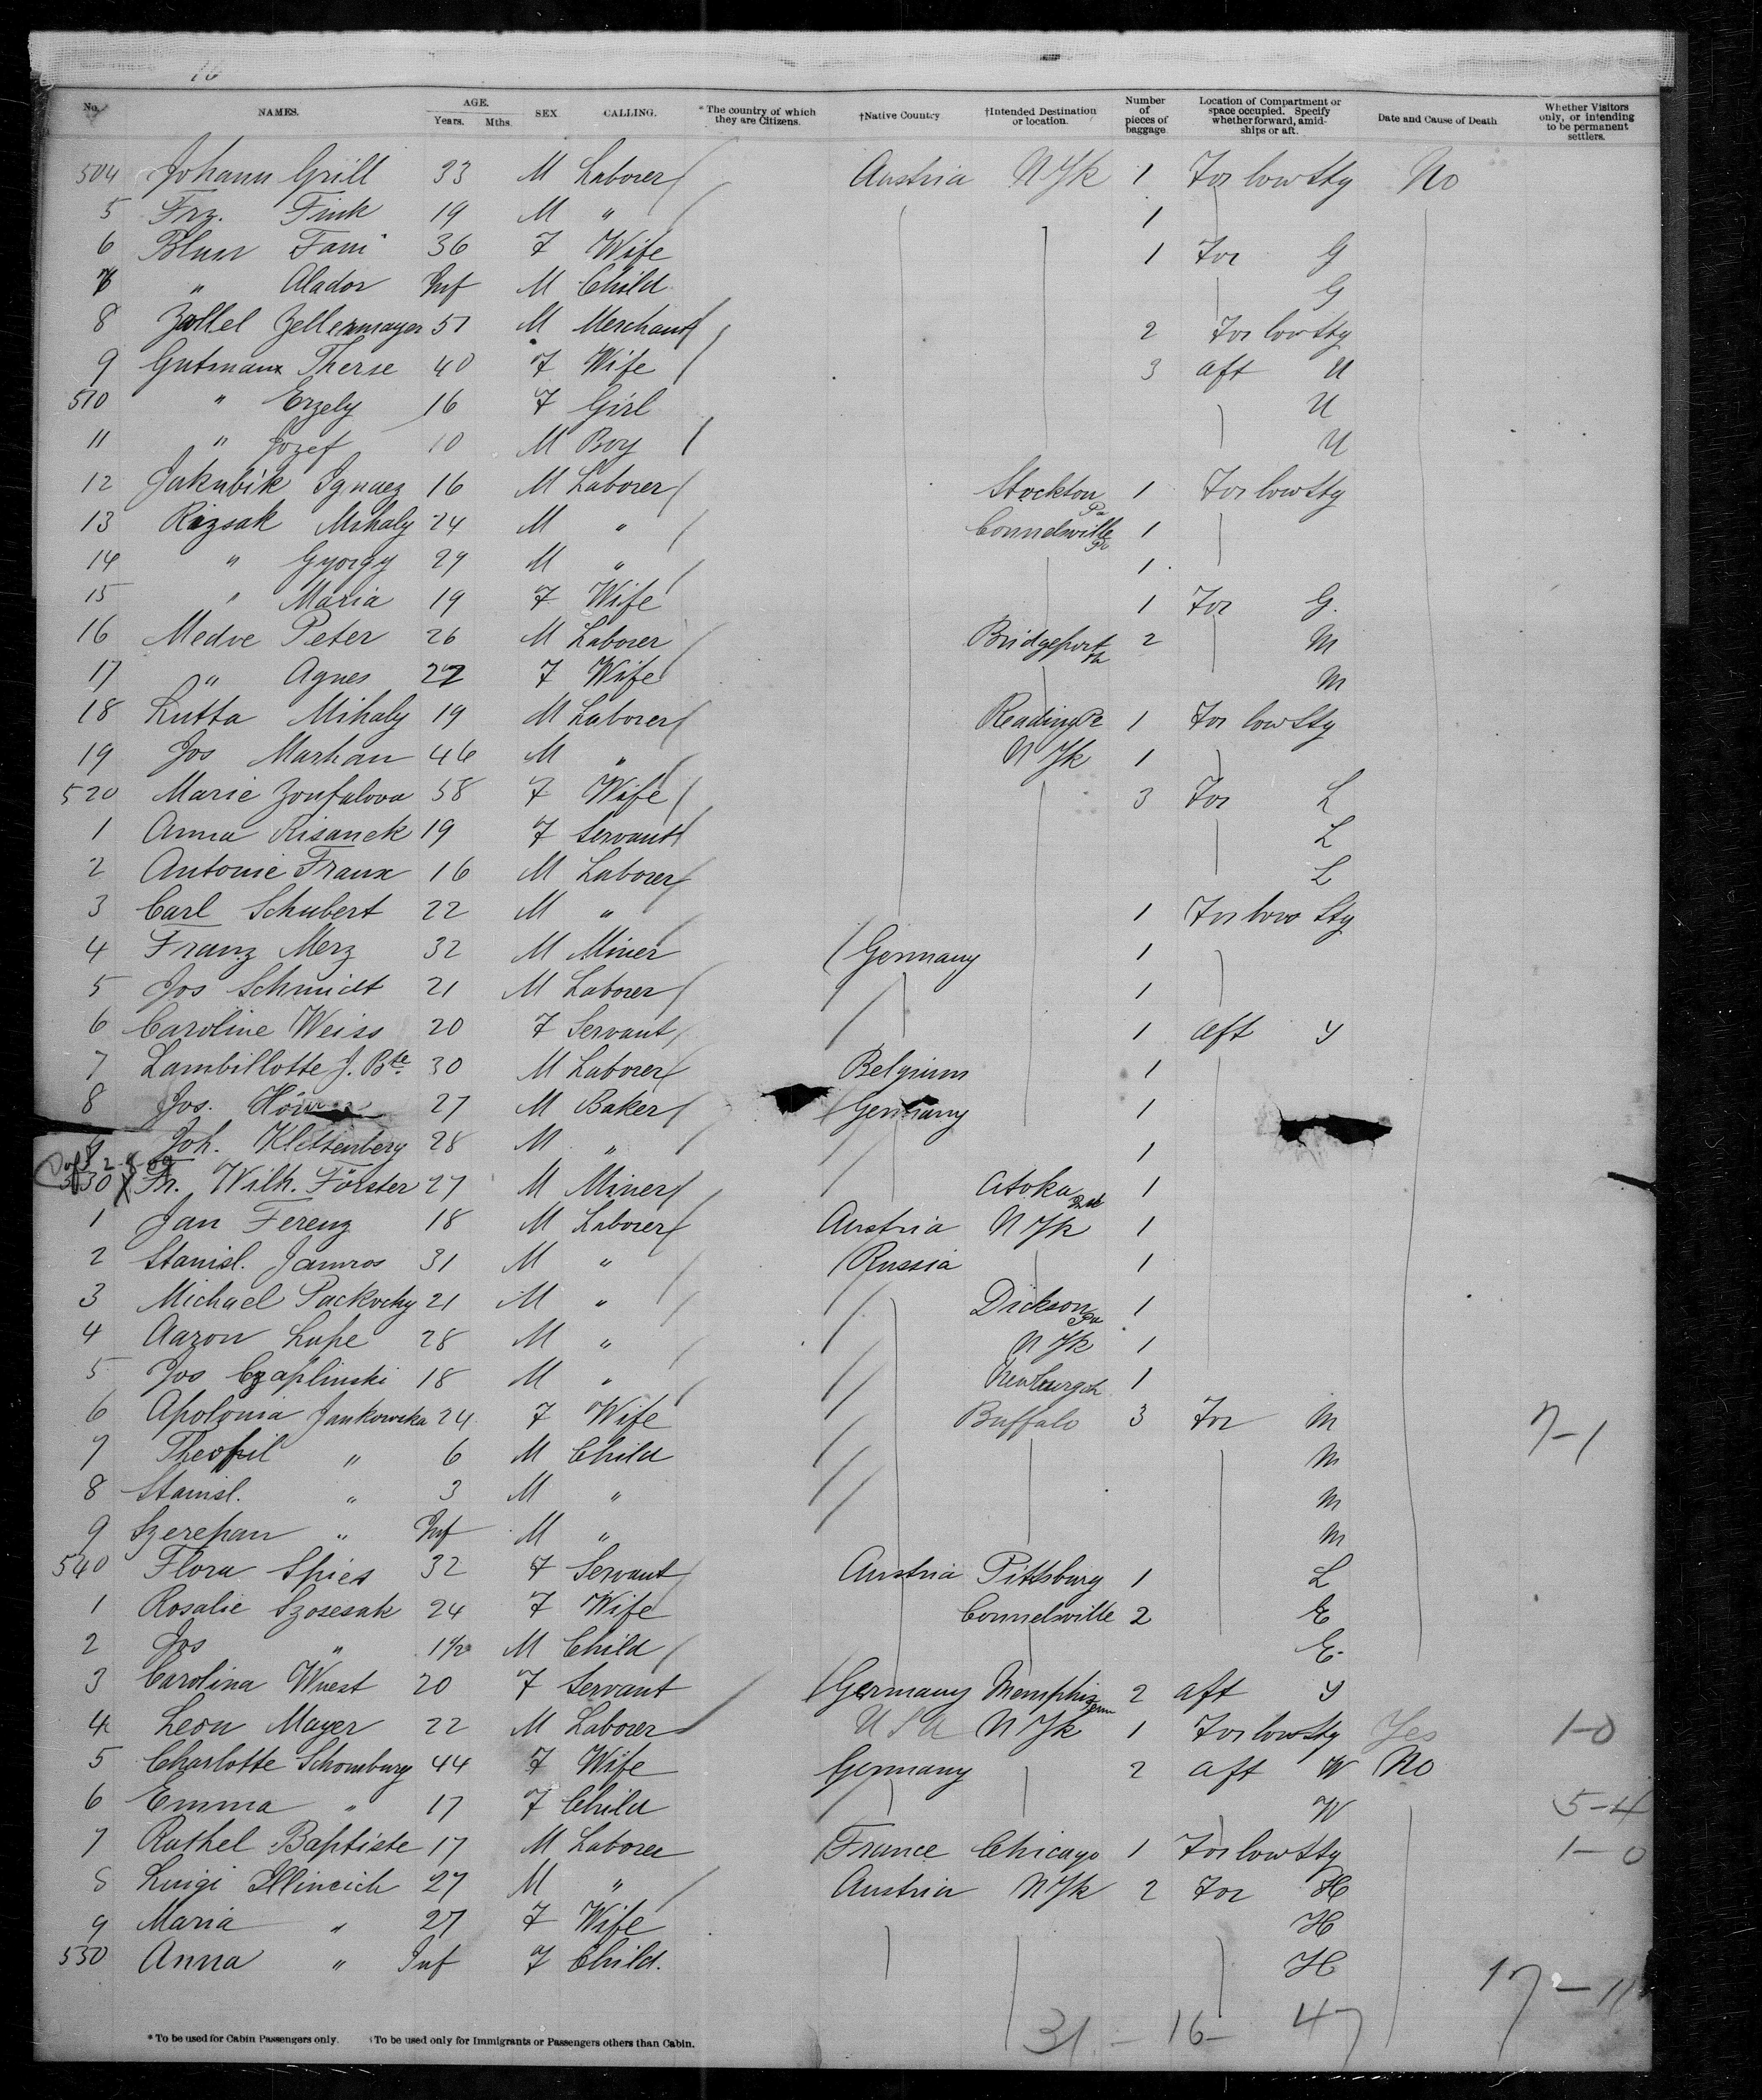 16
No. NAMES. AGE. Years. Mths. SEX CALLING. *The country of which they are Citizens. †Native Country †Intended Destination or location. Number of pieces of baggage Location of Compartment or space occupied. Specify whether forward, amid-ships or aft. Date and Cause of Death Whether Visitors only, or intending to be permanent settlers.
504 Johann Grill 33 M Laborer Austria N Yk 1 For low Stg No
5 Frz. Fink 19 M " 1
6 Blum Fani 36 F Wife 1 For G
7 " Alador Inf M Child G
8 Zollel Zellermayer 51 M Merchant 2 For low Stg
9 Gutmann Therse 40 F Wife 3 aft U
510 " Erzely 16 F Girl U
11 " Jozef 10 M Boy U
12 Jakubik Ignacz 16 M Laborer Stockton Pa 1 For low Stg
13 Rizsak Mihaly 24 M " Connelsville Pa 1
14 " Gyorgy 29 M " 1
15 " Maria 19 F Wife 1 For G.
16 Medve Peter 26 M Laborer Bridgeport 2 M
17 " Agnes 22 F Wife M
18 Lutta Mihaly 19 M Laborer Reading Pe 1 For low Stg
19 Jos Marhan 46 M " N Yk 1
520 Marie Zoufalova 58 F Wife 3 For L
1 Anna Risanek 19 F Servant L
2 Antonie Franx 16 M Laborer L
3 Carl Schubert 22 M " 1 For low Stg
4 Franz Merz 32 M Miner Germany 1
5 Jos Schmidt 21 M Laborer 1
6 Caroline Weiss 20 F Servant 1 aft Y
7 Lambillotte J. Bte. 30 M Laborer Belgium 1
8 Jos. 27 M Baker Germany 1
9 Joh. Klettenberg 28 M " 1
530 Fr. Wilh. Förster 27 M Miner Atoka 1
1 Jan Ferenz 18 M Laborer Austria N Yk 1
2 Stanisl. Jamros 31 M " Russia 1
3 Michael Packochy 21 M " Dickson Pa 1
4 Aazon Lupe 28 M " N Yk 1
5 Jos Czaplinski 18 M " Newburgh 1
6 Apolonia Jankowska 24 F Wife Buffalo 3 For M 7-1
7 Theofil " 6 M Child M
8 Stanisl. " 3 M " M
9 Szerepan " Inf M " M
540 Flora Spies 32 F Servant Austria Pittsburg 1 L
1 Rosalie Szosesak 24 F Wife Connelsville 2 E
2 Jos " 1 1/2 M Child E.
3 Carolina Wuest 20 F Servant Germany Memphis Tenn 2 aft Y
4 Leon Mayer 22 M Laborer U S A N Yk 1 For low Stg Yes 1-0
5 Charlotte Schomburg 44 F Wife Germany 2 aft W No
6 Emma " 17 F Child W 5-4
7 Rathel Baptiste 17 M Laborer France Chicago 1 For low Stg 1-0
8 Luigi Illincich 27 M " Austria N Yk 2 For H
9 Maria " 27 F Wife H
550 Anna " Inf F Child. H
17-11
31 - 16 - 47
* To be used for Cabin Passengers only. †To be used only for Immigrants or Passengers others than Cabin.